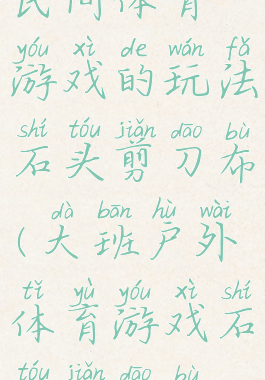 民间体育
yóu xì de wán fǎ
游戏的玩法
shí tóu jiǎn dāo bù
石头剪刀布
dà bān hù wài
(大班户外
tǐ yù yóu xì shí
体育游戏石
tóu jiǎn dāo bù